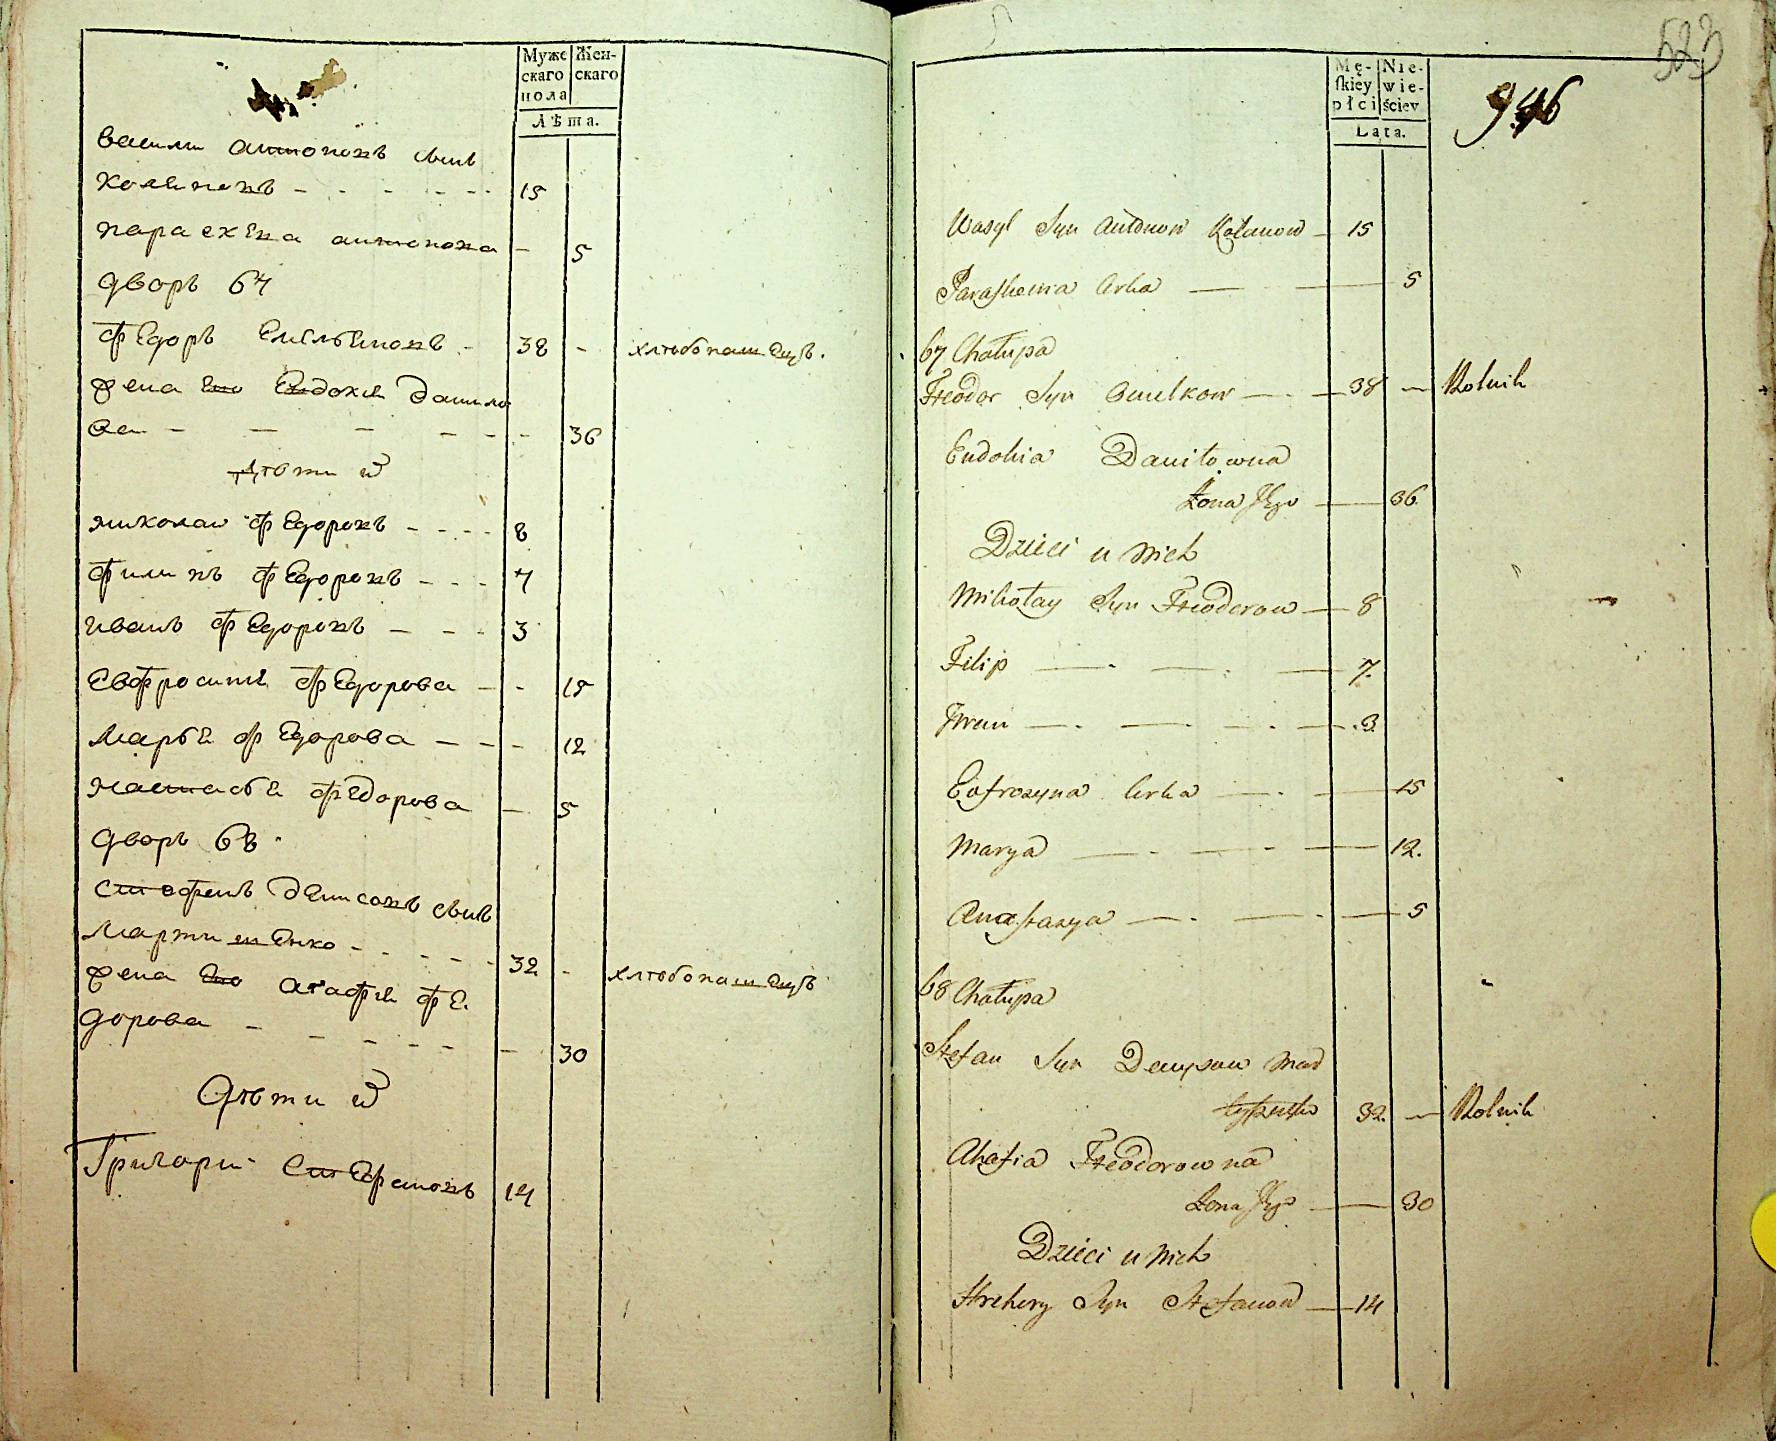 Муже
скаго
пола
Жен-
скаго
Лѣта.
васили антоновъ сынъ
коляновъ - - - - - - 15
параскева антонова - 5
дворъ 67
Федоръ Емельяновъ - 38 - хлѣбопашецъ.
жена Его Евдокия Данило
ва - - - - - - 36
Дѣти их
миколаи Федоровъ - - - - 8
Филипъ Федоровъ - - - 7
иванъ Федоровъ - - - 3
Евфросиния Федорова - - 15
Марья Федорова - - - 12
настасья Федорова - 5
дворъ 68
Стефанъ денисовъ сынъ
Марти - - - - - 32 - хлѣбопашецъ
жена Его агафия Фе.
дорова - - - - - - 30
Дѣти их
Григори Стефановъ 14
523
Mę-
skiey
płci
Nie-
wie-
ściey
Lata.
946
Wasyl Syn Antonow Kolanow - 15
Paraskewia Crka — — 5
67 Chałupa
Fteodor Syn Omelkow — - — 38 — Rolnik
Eudokia Daniłowna
Żona Jego — 36
Dzieci u nich
Mikołay Syn Fteodorow — 8
Filip — - — - — 7.
Iwan — - — - — - — 3
Eufrozyna Crka — - — 15
Marya — - — - — 12.
Anastasya — - — - — 5
68 Chałupa
Stefan Syn Denysow Mar
32. — Rolnik
Ahafia Fteodorowna
Żona Jego — 30
Dzieci u nich
Hrehory Syn Stefanow — 14